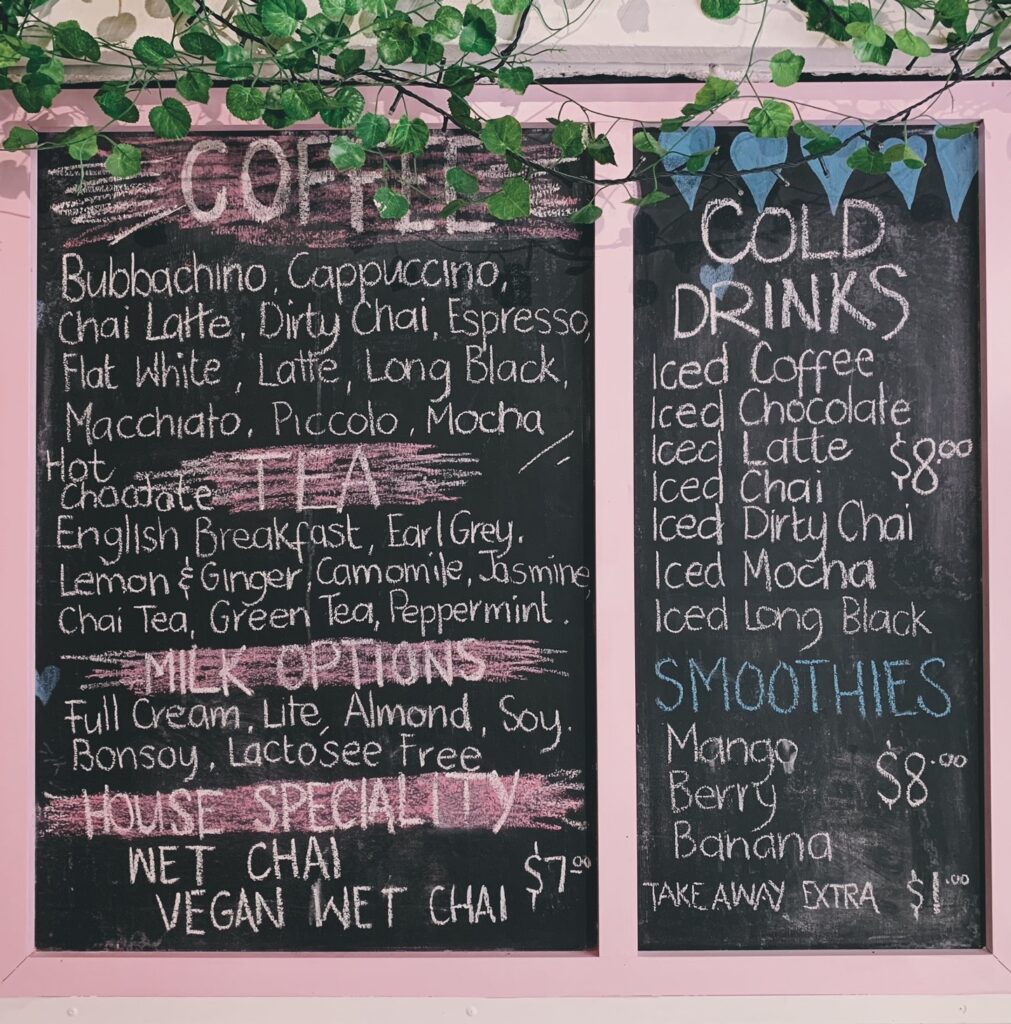 COFFEE
Bubbachino, Cappuccino,
Chai Latte, Dirty Chai, Espresso,
Flat White, Latte, Long Black,
Macchiato, Piccolo, Mocha
Hot
Chocolate
TEA
English Breakfast, Earl Grey.
Lemon & Ginger, Camomile, Jasmine,
Chai Tea, Green Tea, Peppermint.
MILK OPTIONS
Full Cream, Lite, Almond, Soy.
Bonsoy, Lactosee Free
HOUSE SPECIALITY
WET CHAI
VEGAN WET CHAI $7.00
COLD
DRINKS
Iced Coffee
Iced Chocolate
Iced Latte $8.00
Iced Chai
Iced Dirty Chai
Iced Mocha
Iced Long Black
SMOOTHIES
Mango
Berry $8.00
Banana
TAKE AWAY EXTRA $1.00